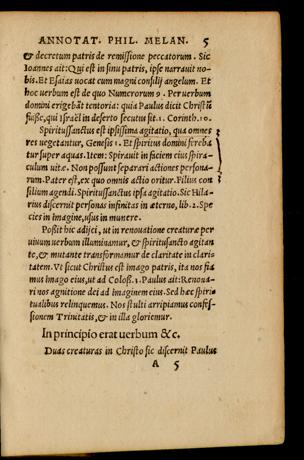 ANNOTAT. PHIL. MELAN. 5
& decretum patris de remissione peccatorum. Sic
Ioannes ait: Qui est in sinu patris, ipse narrauit no-
bis. Et Esaias uocat eum magni consilij angelum. Et
hoc uerbum est de quo Numerorum 9. Per uerbum
domini erigebāt tentoria: quia Paulus dicit Christū
fuisse, qui Israël in deserto secutus sit. 1. Corinth. 10.
Spiritussanctus est ipsissima agitatio, qua omnes
res uegetantur, Genesis 1. Et spiritus domini fereba
tur super aquas. Item: Spirauit in faciem eius spira-
culum uitæ. Non possunt separari actiones persona-
rum. Pater est, ex quo omnis actio oritur. Filius con
silium agendi. Spiritussanctus ipsa agitatio. Sic Hila-
rius discernit personas infinitas in æterno, lib. 2. Spe
cies in imagine, usus in munere.
Possit hic adijci, ut in renouatione creaturæ per
uiuum uerbum illuminamur, & spiritusancto agitan
te, & mutante transformamur de claritate in clari-
tatem. Vt sicut Christus est imago patris, ita nos fia
mus imago eius, ut ad Coloss. 3. Paulus ait: Renoua-
ri nos agnitione dei ad imaginem eius. Sed hæc spiri-
tualibus relinquemus. Nos stulti arripiamus confes-
sionem Trinitatis, & in illa gloriemur.
In principio erat uerbum &c.
Duas creaturas in Christo sic discernit Paulus
A 5